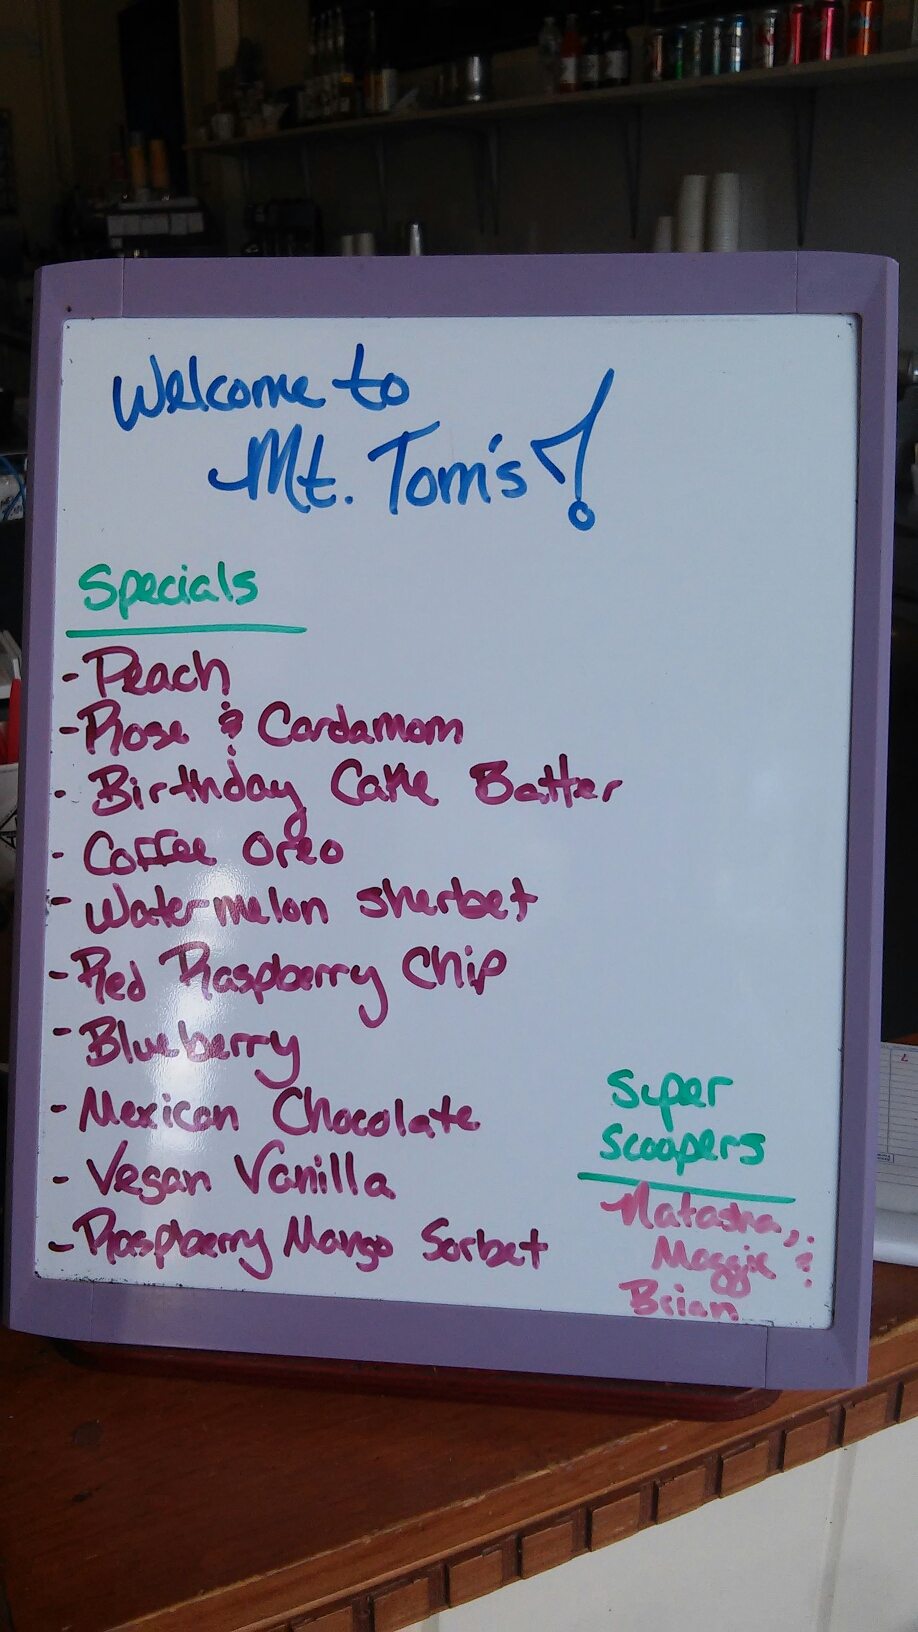 Welcome to
Mt. Tom's!
Specials
- Peach
- Rose & Cardamom
- Birthday Cake Batter
- Coffee Oreo
- Watermelon sherbet
- Red Raspberry Chip
- Blueberry
- Mexican Chocolate
- Vegan Vanilla
- Raspberry Mango Sorbet
Super
Scoopers
Natasha,
Maggie &
Brian